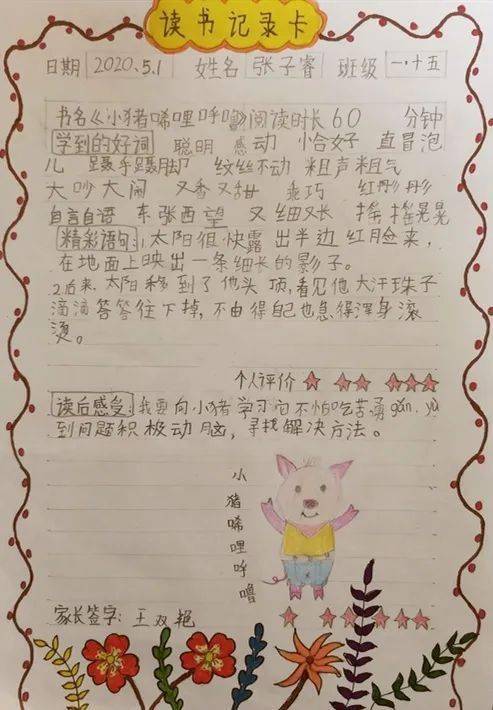 读书记录卡
日期 2020.5.1 姓名 张子睿 班级 一·十五
书名《小猪唏哩呼噜》阅读时长60 分钟
学到的好词 聪明 感动 恰好 直冒泡
儿 蹑手蹑脚 纹丝不动 粗声粗气
大吵大闹 又香又甜 乖巧 红彤彤
自言自语 东张西望 又细又长 摇摇晃晃
精彩语句:1.太阳很快露出半边红脸来，
在地面上映出一条细长的影子。
2.后来,太阳移到了他头顶,看见他大汗珠子
滴滴答答往下掉,不由得自己也急得浑身滚
烫。
个人评价
读后感受:我要向小猪学习它不怕吃苦勇gǎn，yù
到问题积极动脑，寻找解决方法。
小猪唏哩呼噜
家长签字:王双艳